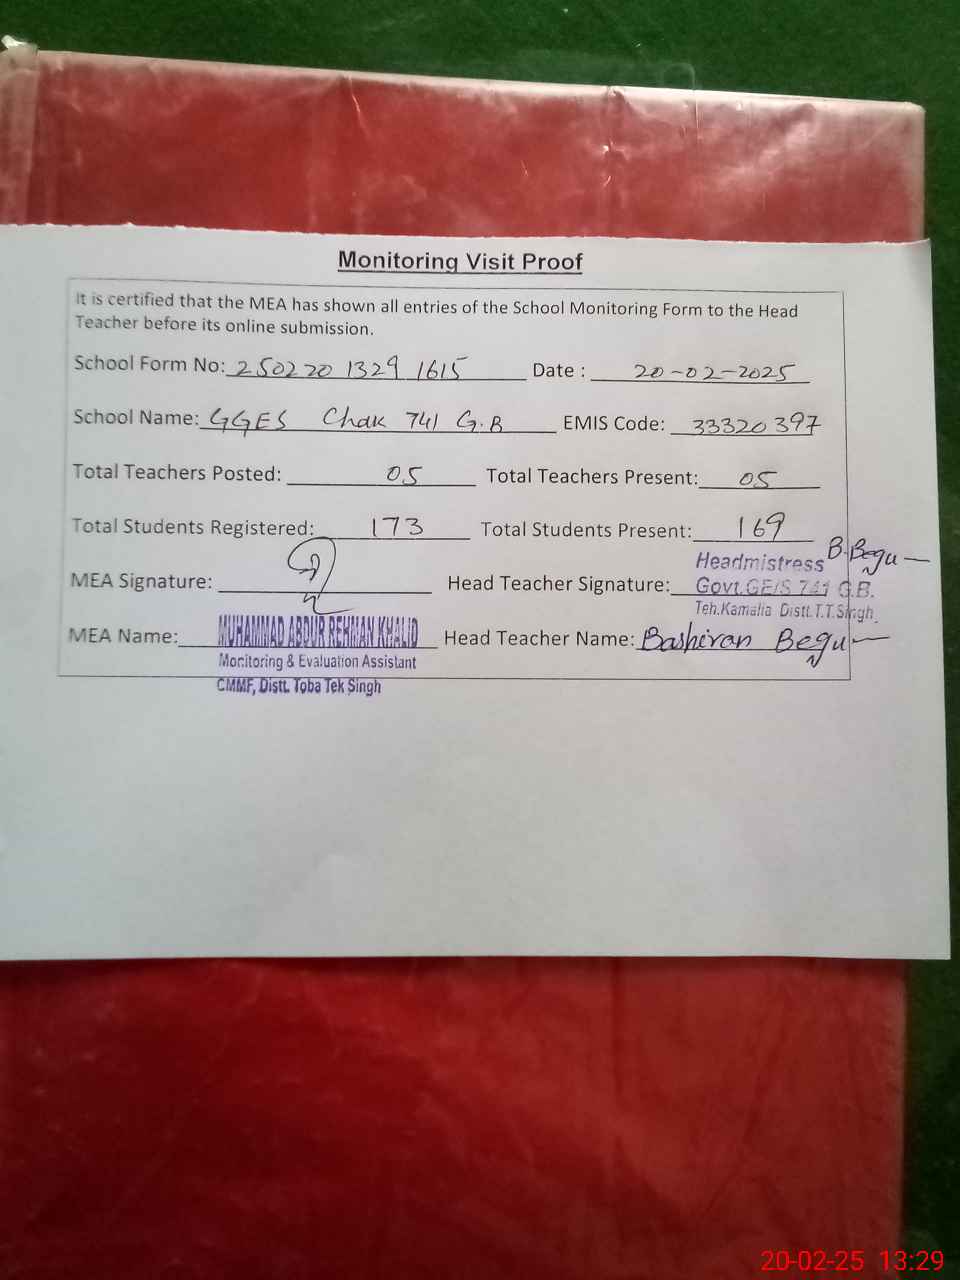 Monitoring Visit Proof
It is certified that the MEA has shown all entries of the School Monitoring Form to the Head
Teacher before its online submission.
School Form No: 250220 1329 1615 Date : 20-02-2025
School Name: GGES Chak 741 G.B EMIS Code: 33320397
Total Teachers Posted: 05 Total Teachers Present: 05
Total Students Registered: 173 Total Students Present: 169
B.Begum
Headmistress
MEA Signature: Head Teacher Signature: Govt.GE/S 741 G.B.
Teh.Kamalia Distt.T.T.Singh.
MEA Name: MUHAMMAD ABDUR REHMAN KHALID Head Teacher Name: Bashiran Begum
Monitoring & Evaluation Assistant
CMMF, Distt. Toba Tek Singh
20-02-25 13:29